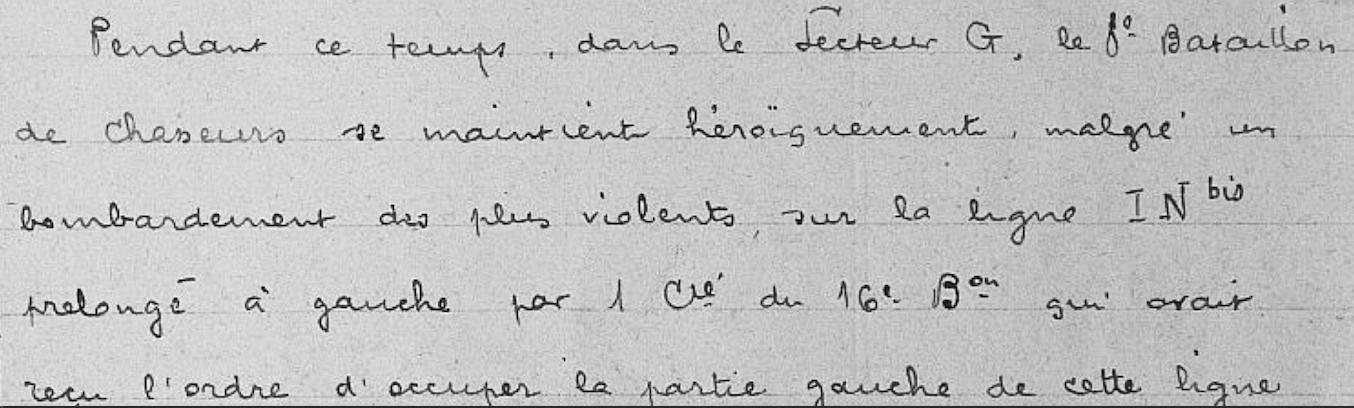 Pendant ce temps, dans le Secteur G, le 8e Bataillon
de Chasseurs se maintient héroïquement, malgré un
bombardement des plus violents, sur la ligne IN bis
prolongé à gauche par 1 Cie du 16e Bon qui avait
reçu l'ordre d'occuper la partie gauche de cette ligne